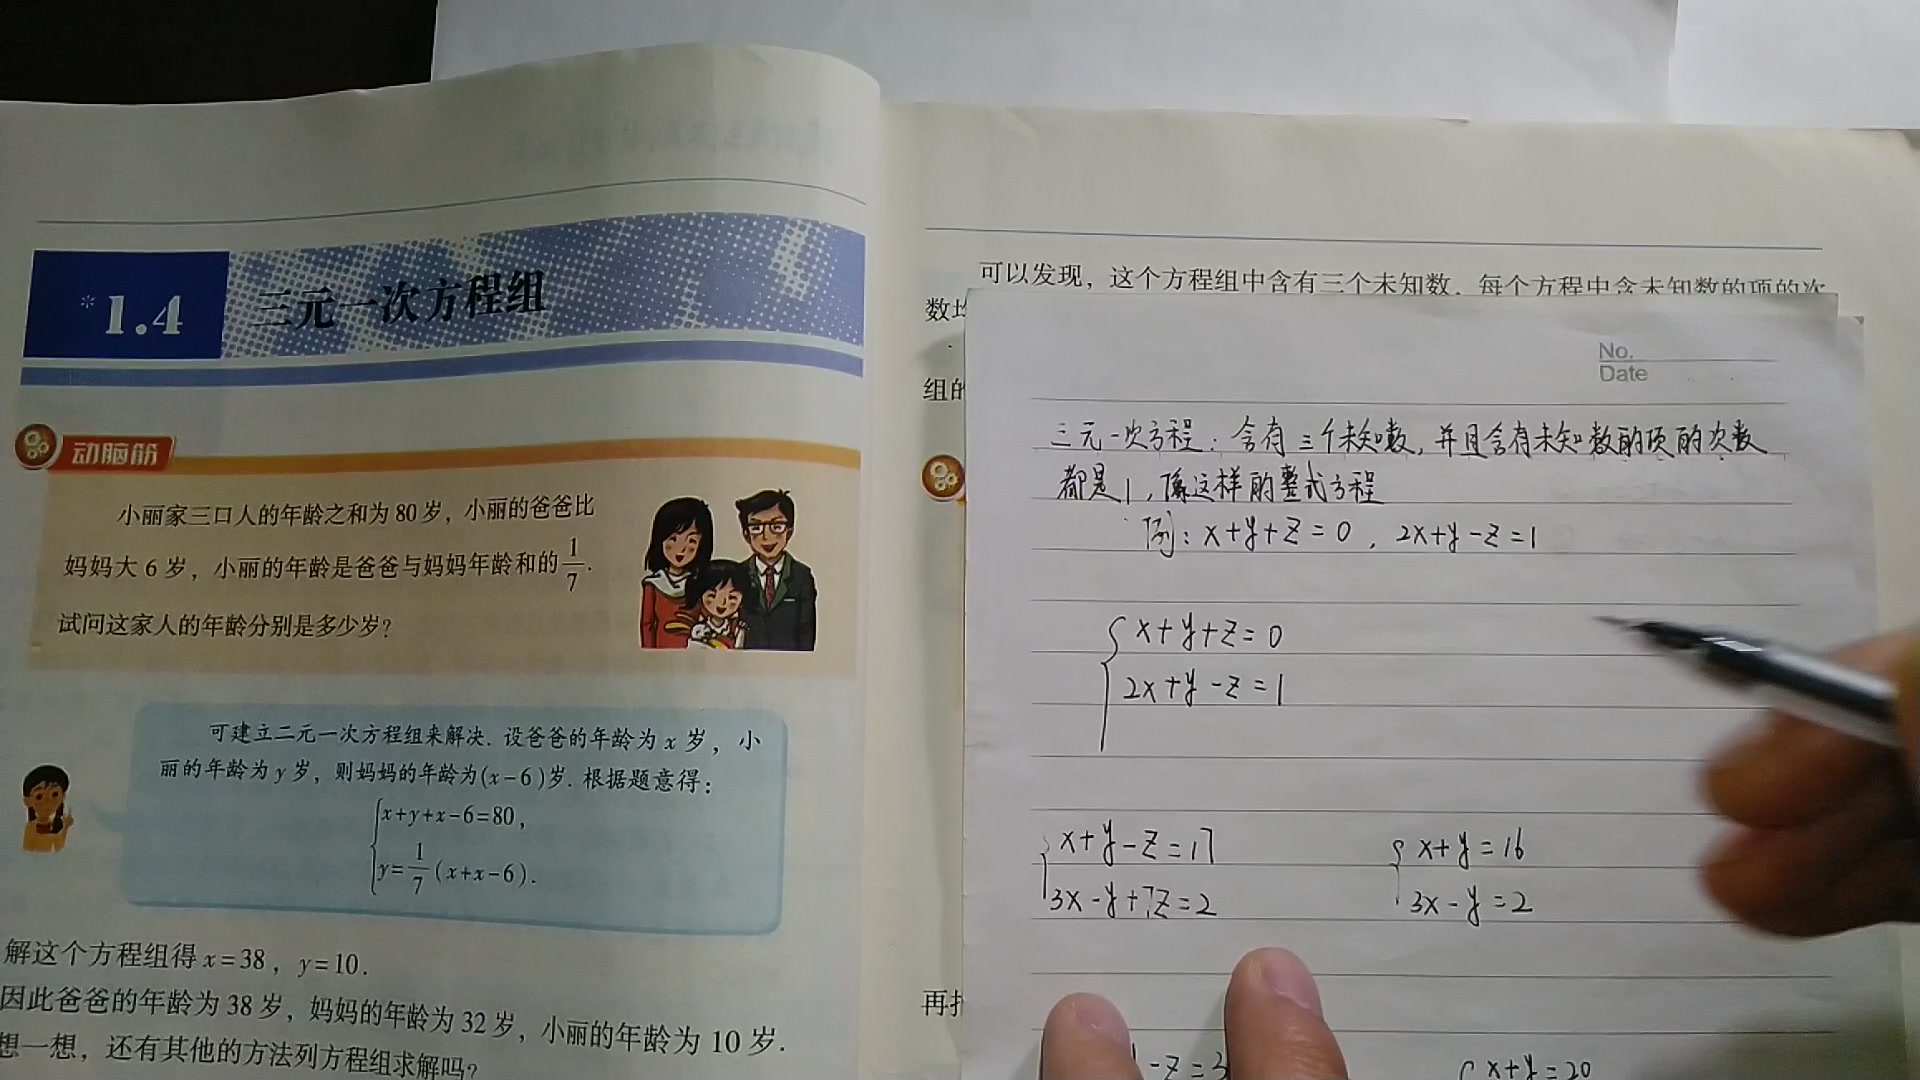 *1.4 三元一次方程组
动脑筋
小丽家三口人的年龄之和为80岁，小丽的爸爸比
妈妈大6岁，小丽的年龄是爸爸与妈妈年龄和的1/7.
试问这家人的年龄分别是多少岁？
可建立二元一次方程组来解决. 设爸爸的年龄为x岁，小
丽的年龄为y岁，则妈妈的年龄为(x-6)岁. 根据题意得：
x+y+x-6=80，
y=1/7(x+x-6).
解这个方程组得x=38，y=10.
因此爸爸的年龄为38岁，妈妈的年龄为32岁，小丽的年龄为10岁.
想一想，还有其他的方法列方程组求解吗？
可以发现，这个方程组中含有三个未知数，每个方程中含未知数的项的次
数均
组的
再把
No.
Date
三元一次方程：含有三个未知数，并且含有未知数的项的次数
都是1，像这样的整式方程
例：x+y+z=0，2x+y-z=1
x+y+z=0
2x+y-z=1
x+y-z=17
3x-y+7z=2
x+y=16
3x-y=2
-z=3
x+y=20